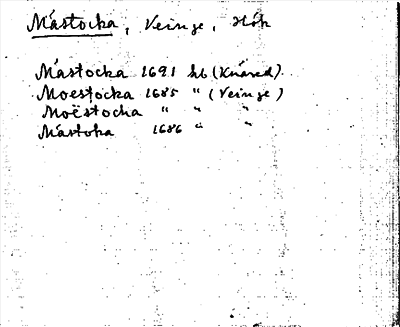 Mástocka, Veinge, Hök
Mástocka 1691 hb (Knäred).
Moestocka 1685 " (Veinge)
Moëstocha " " "
Mástoka 1686 " "